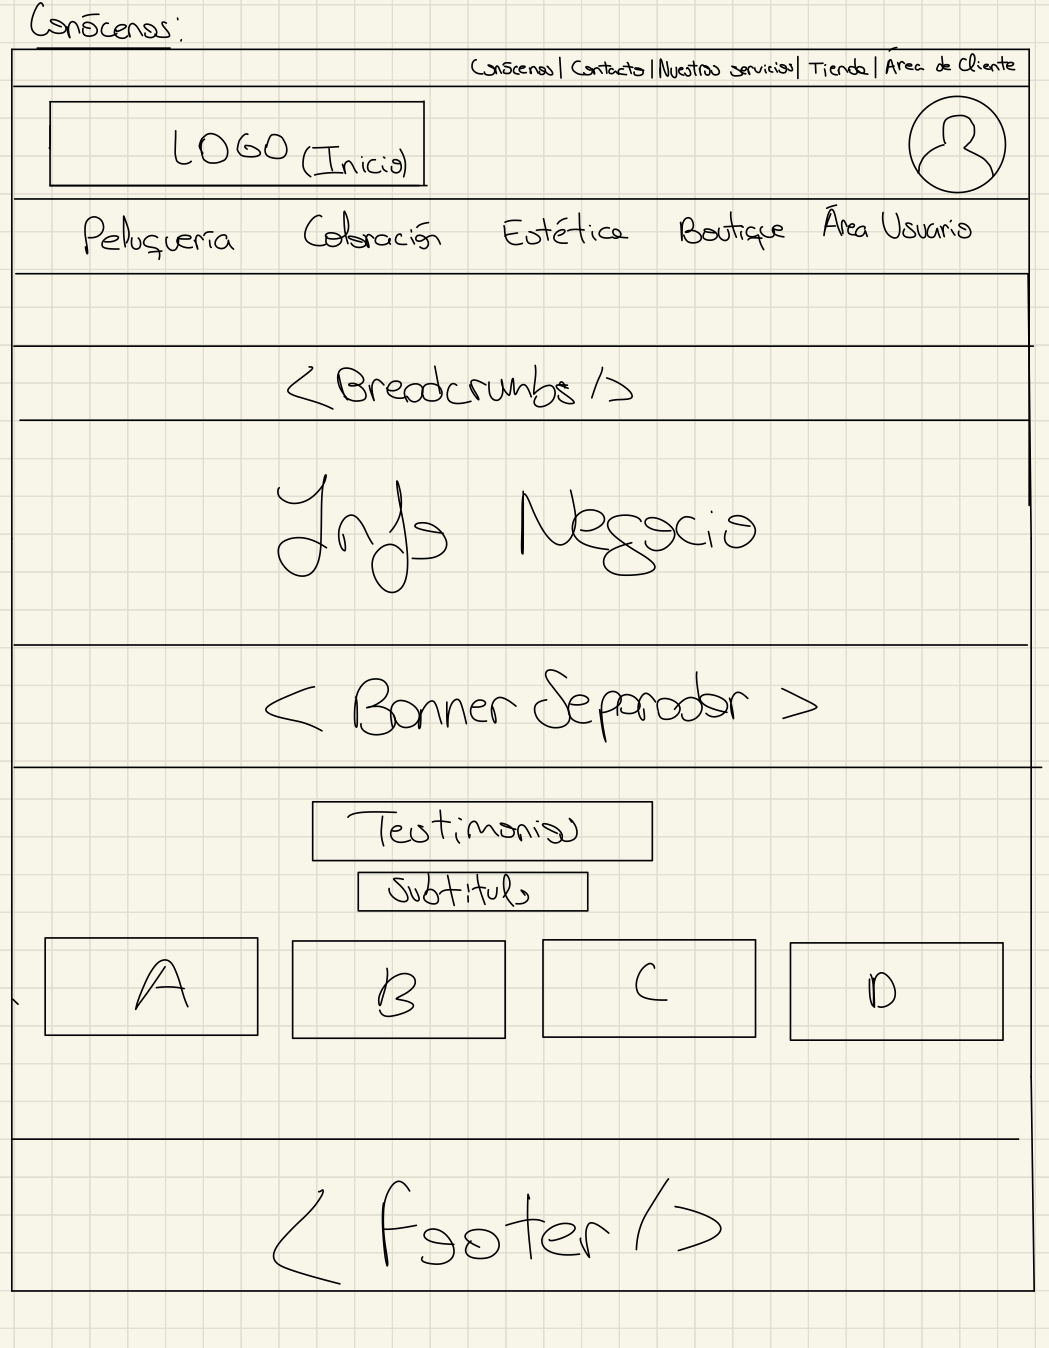 Conócenos:
Conócenos | Contacto | Nuestros servicios | Tienda | Área de Cliente
LOGO (Inicio)
Peluquería Coloración Estética Boutique Área Usuario
<Breadcrumbs />
Info Negocio
< Banner Separador >
Testimonios
Subtitulo
A B C D
< Footer />